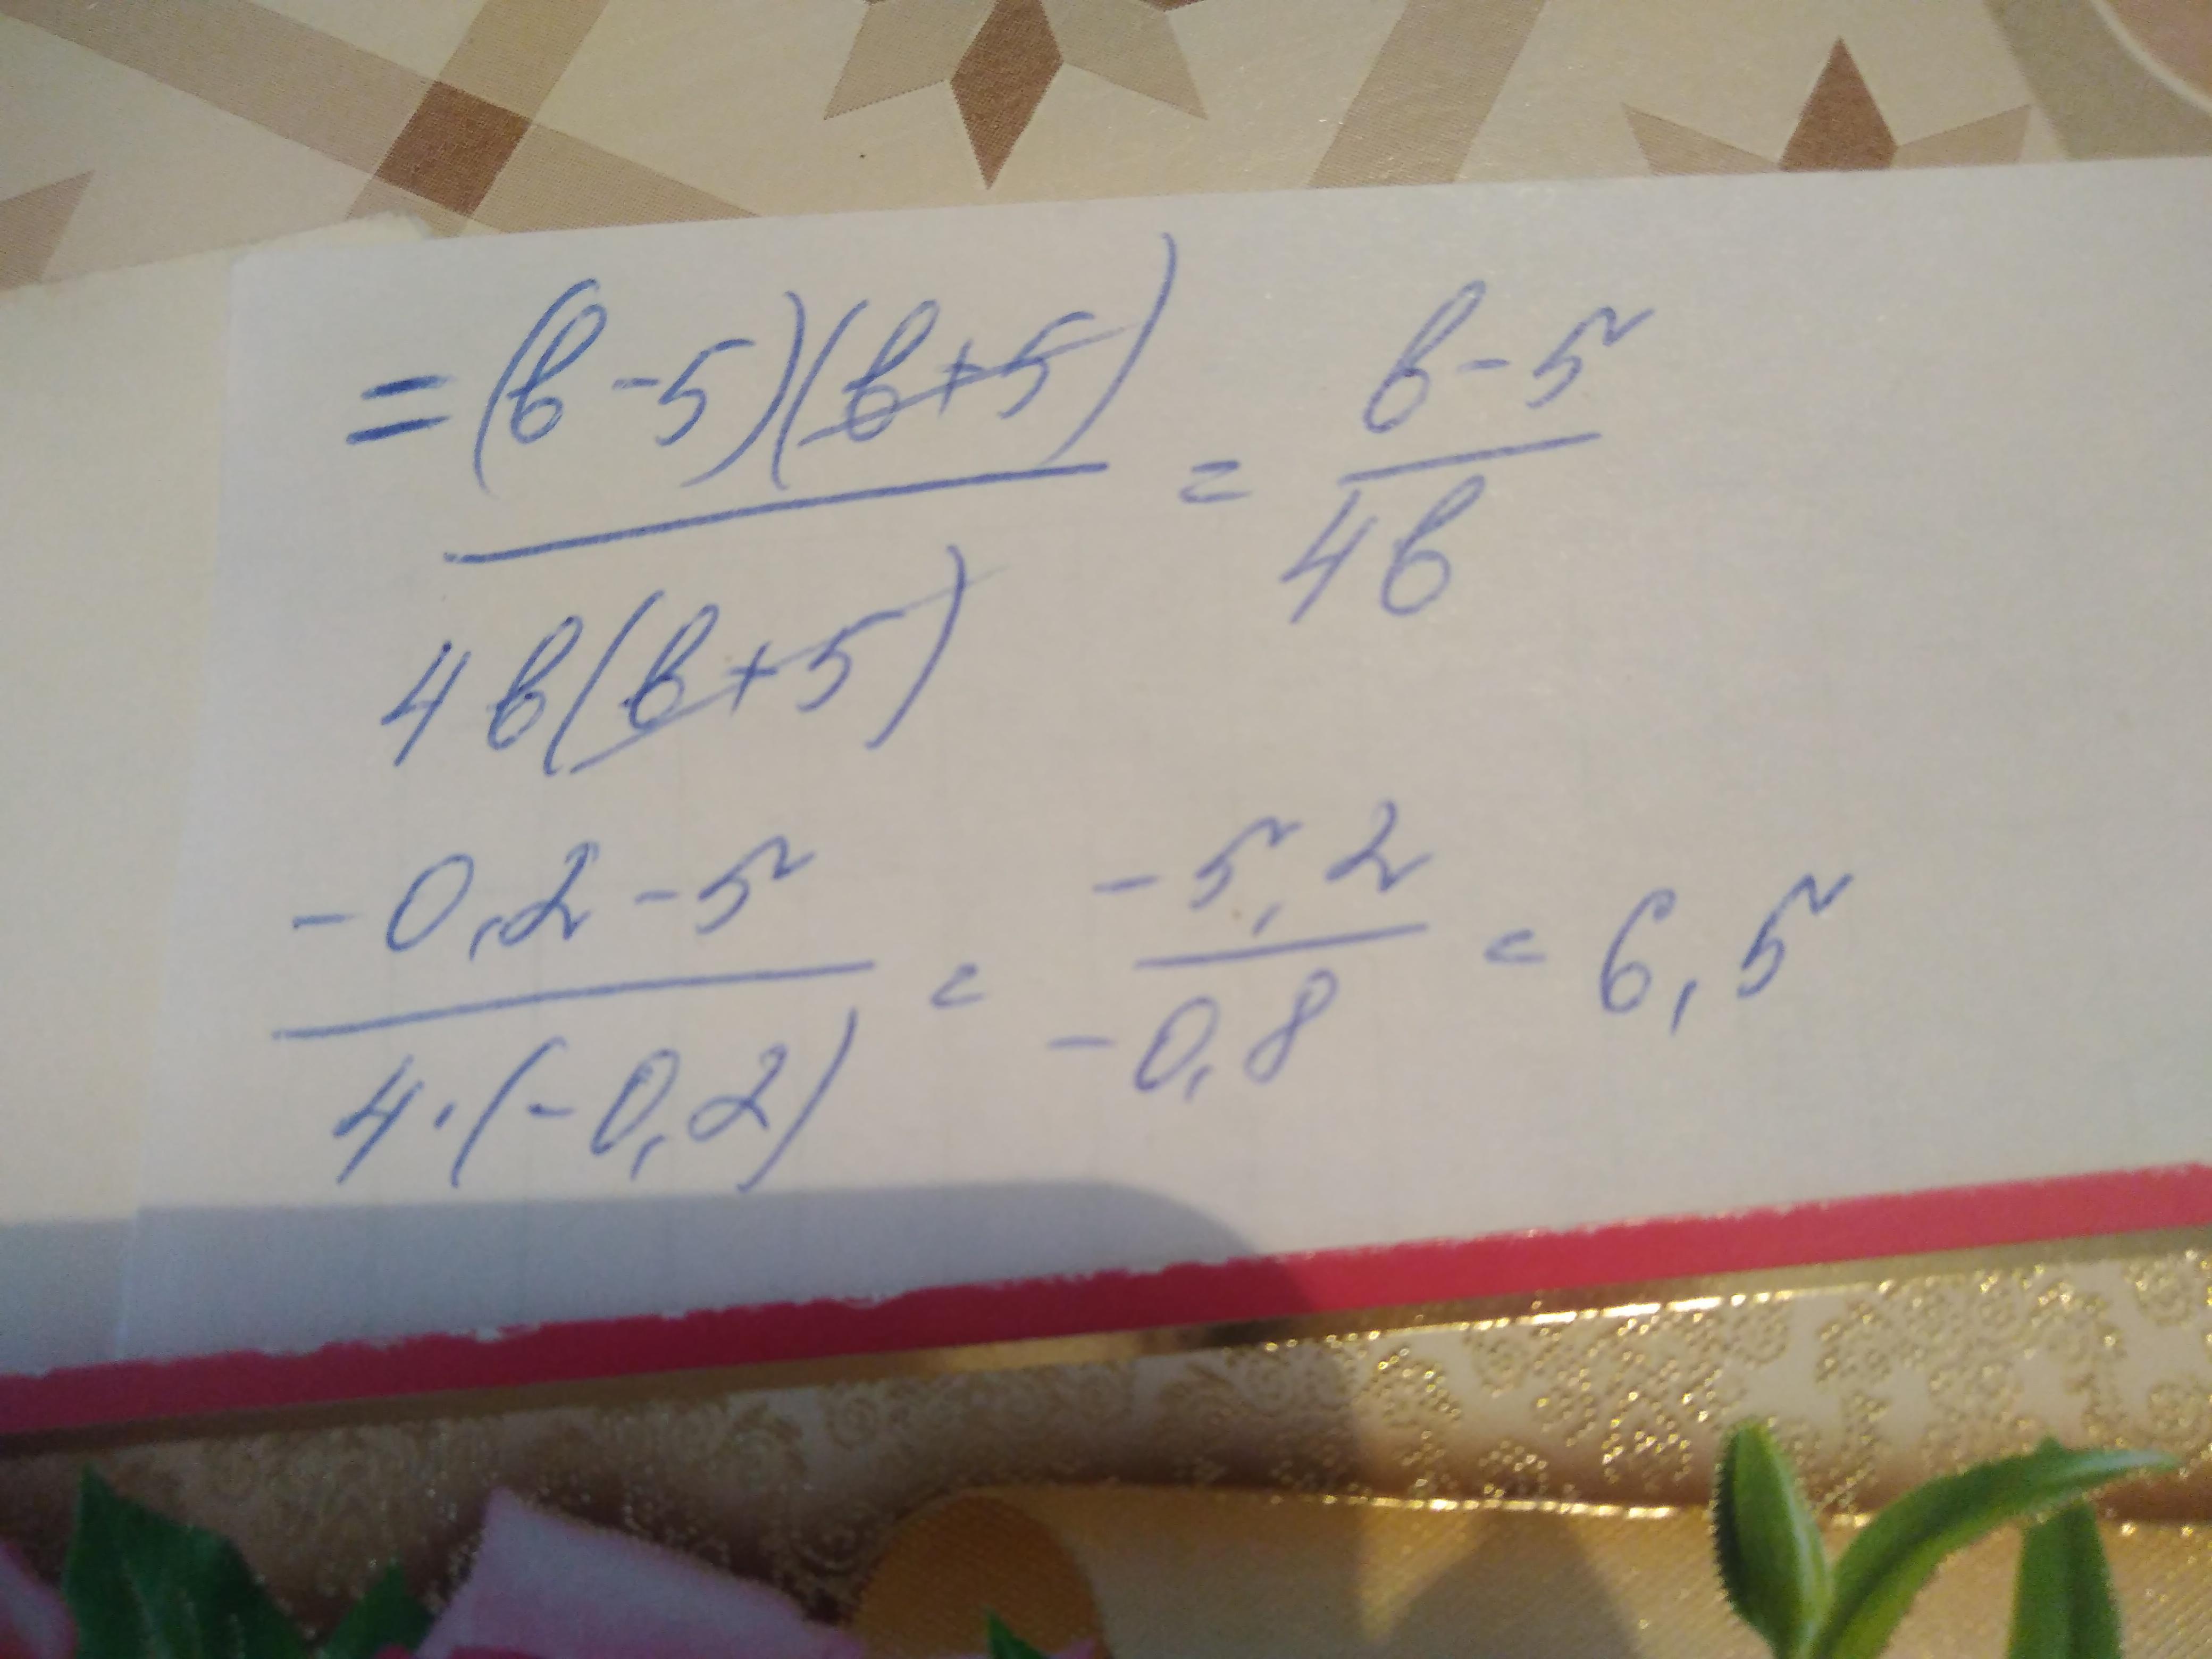 = (b-5)(b+5) / 4b(b+5) = b-5 / 4b
-0,2-5 / 4·(-0,2) = -5,2 / -0,8 = 6,5